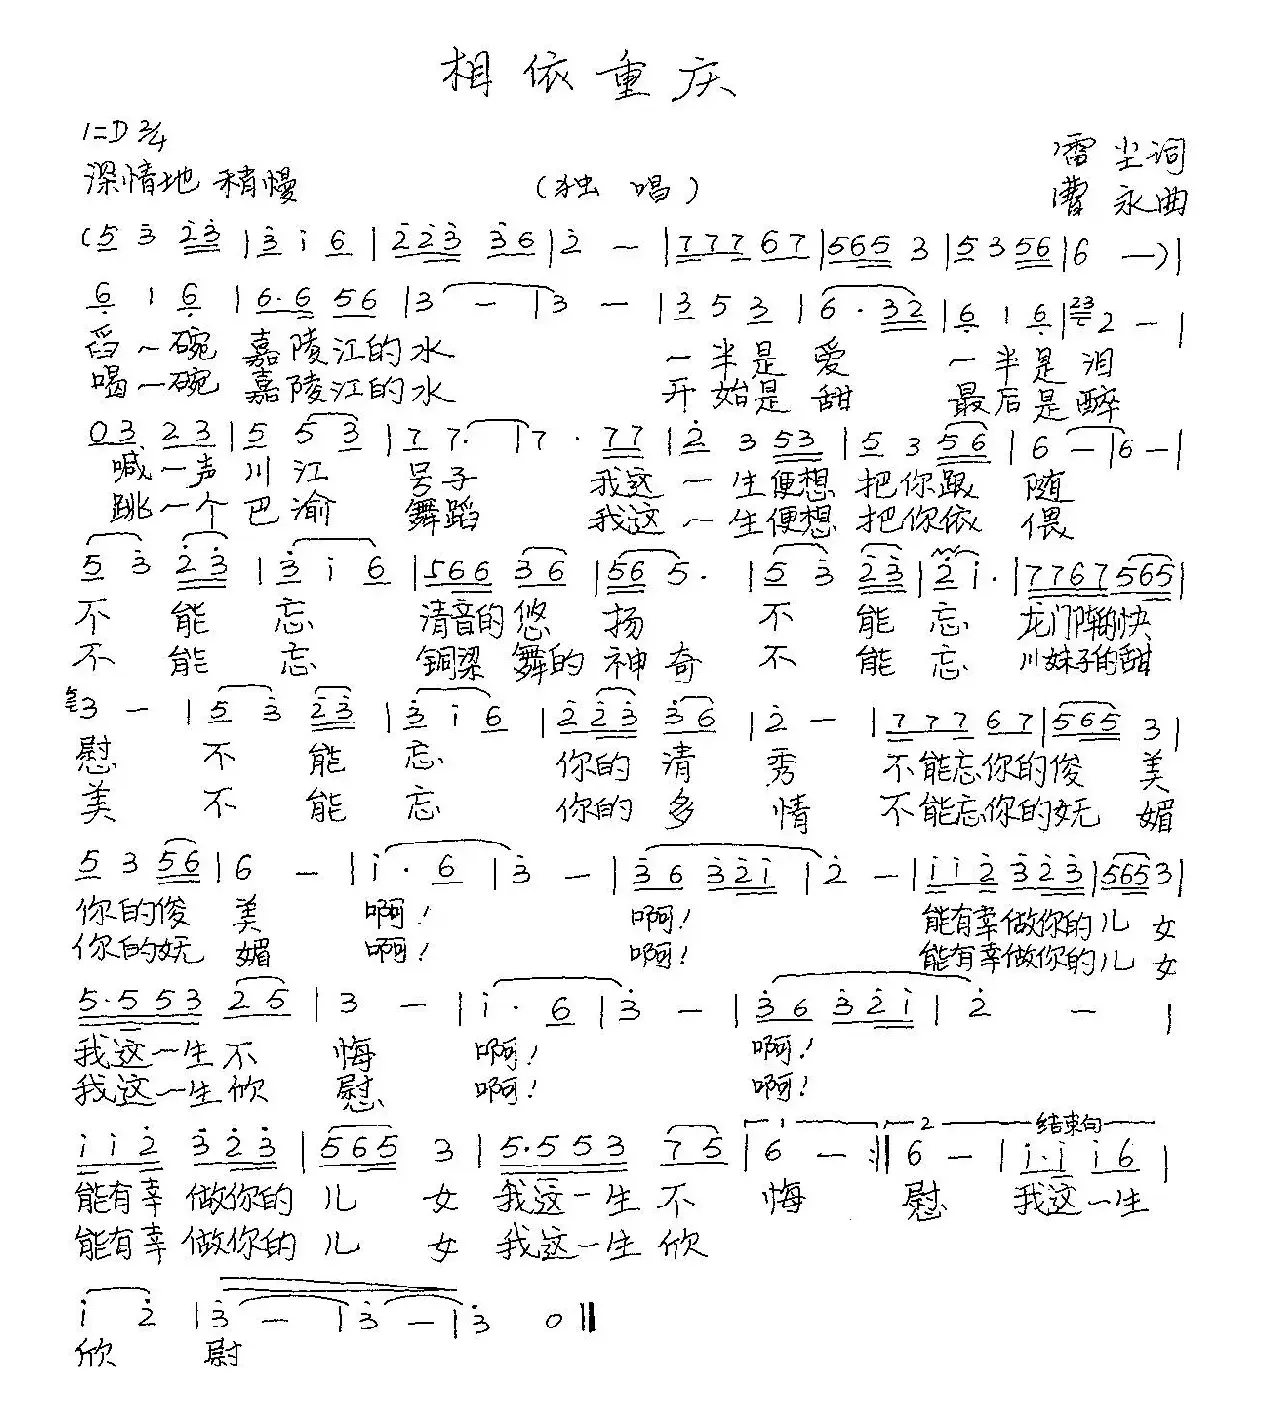 相依重庆
1=D 2/4
雷尘词
深情地 稍慢 (独 唱) 曹永曲
(5 3 2 3 | 3 i 6 | 2 2 3 3 6 | 2 - | 7 7 7 6 7 | 5 6 5 3 | 5 3 5 6 | 6 -) |
6 1 6 | 6. 6 5 6 | 3 - | 3 - | 3 5 3 | 6. 3 2 | 6 1 6 | 23 2 - |
舀一碗 嘉陵江的水 一半是爱 一半是泪
喝一碗 嘉陵江的水 开始是甜 最后是醉
0 3 2 3 | 5 5 3 | 7 7. | 7. 7 7 | 2 3 5 3 | 5 3 5 6 | 6 - | 6 - |
喊一声川江 号子 我这一生便想 把你跟 随
跳一个巴渝 舞蹈 我这一生便想 把你依 偎
5 3 2 3 | 3 i 6 | 5 6 6 3 6 | 5 6 5. | 5 3 2 3 | 2 i. | 7 7 6 7 5 6 5 |
不 能 忘 清音的悠 扬 不 能 忘 龙门阵的快
不 能 忘 铜梁 舞的 神奇 不 能 忘 川妹子的甜
3 - | 5 3 2 3 | 3 i 6 | 2 2 3 3 6 | 2 - | 7 7 7 6 7 | 5 6 5 3 |
慰 不 能 忘 你的 清 秀 不能忘你的俊 美
美 不 能 忘 你的 多 情 不能忘你的妩 媚
5 3 5 6 | 6 - | i. 6 | 3 - | 3 6 3 2 i | 2 - | i i 2 3 2 3 | 5 6 5 3 |
你的俊 美 啊! 啊! 能有幸做你的儿 女
你的妩 媚 啊! 啊! 能有幸做你的儿 女
5. 5 5 3 2 5 | 3 - | i. 6 | 3 - | 3 6 3 2 i | 2 - |
我这一生不 悔 啊! 啊!
我这一生欣 慰 啊! 啊!
1 2 结束句
i i 2 3 2 3 | 5 6 5 3 | 5. 5 5 3 7 5 | 6 - :‖ 6 - | i. i i 6 |
能有幸 做你的 儿 女 我这一生 不 悔 慰 我这一生
能有幸 做你的 儿 女 我这一生 欣
i 2 | 3 - | 3 - | 3 0 ‖
欣 慰